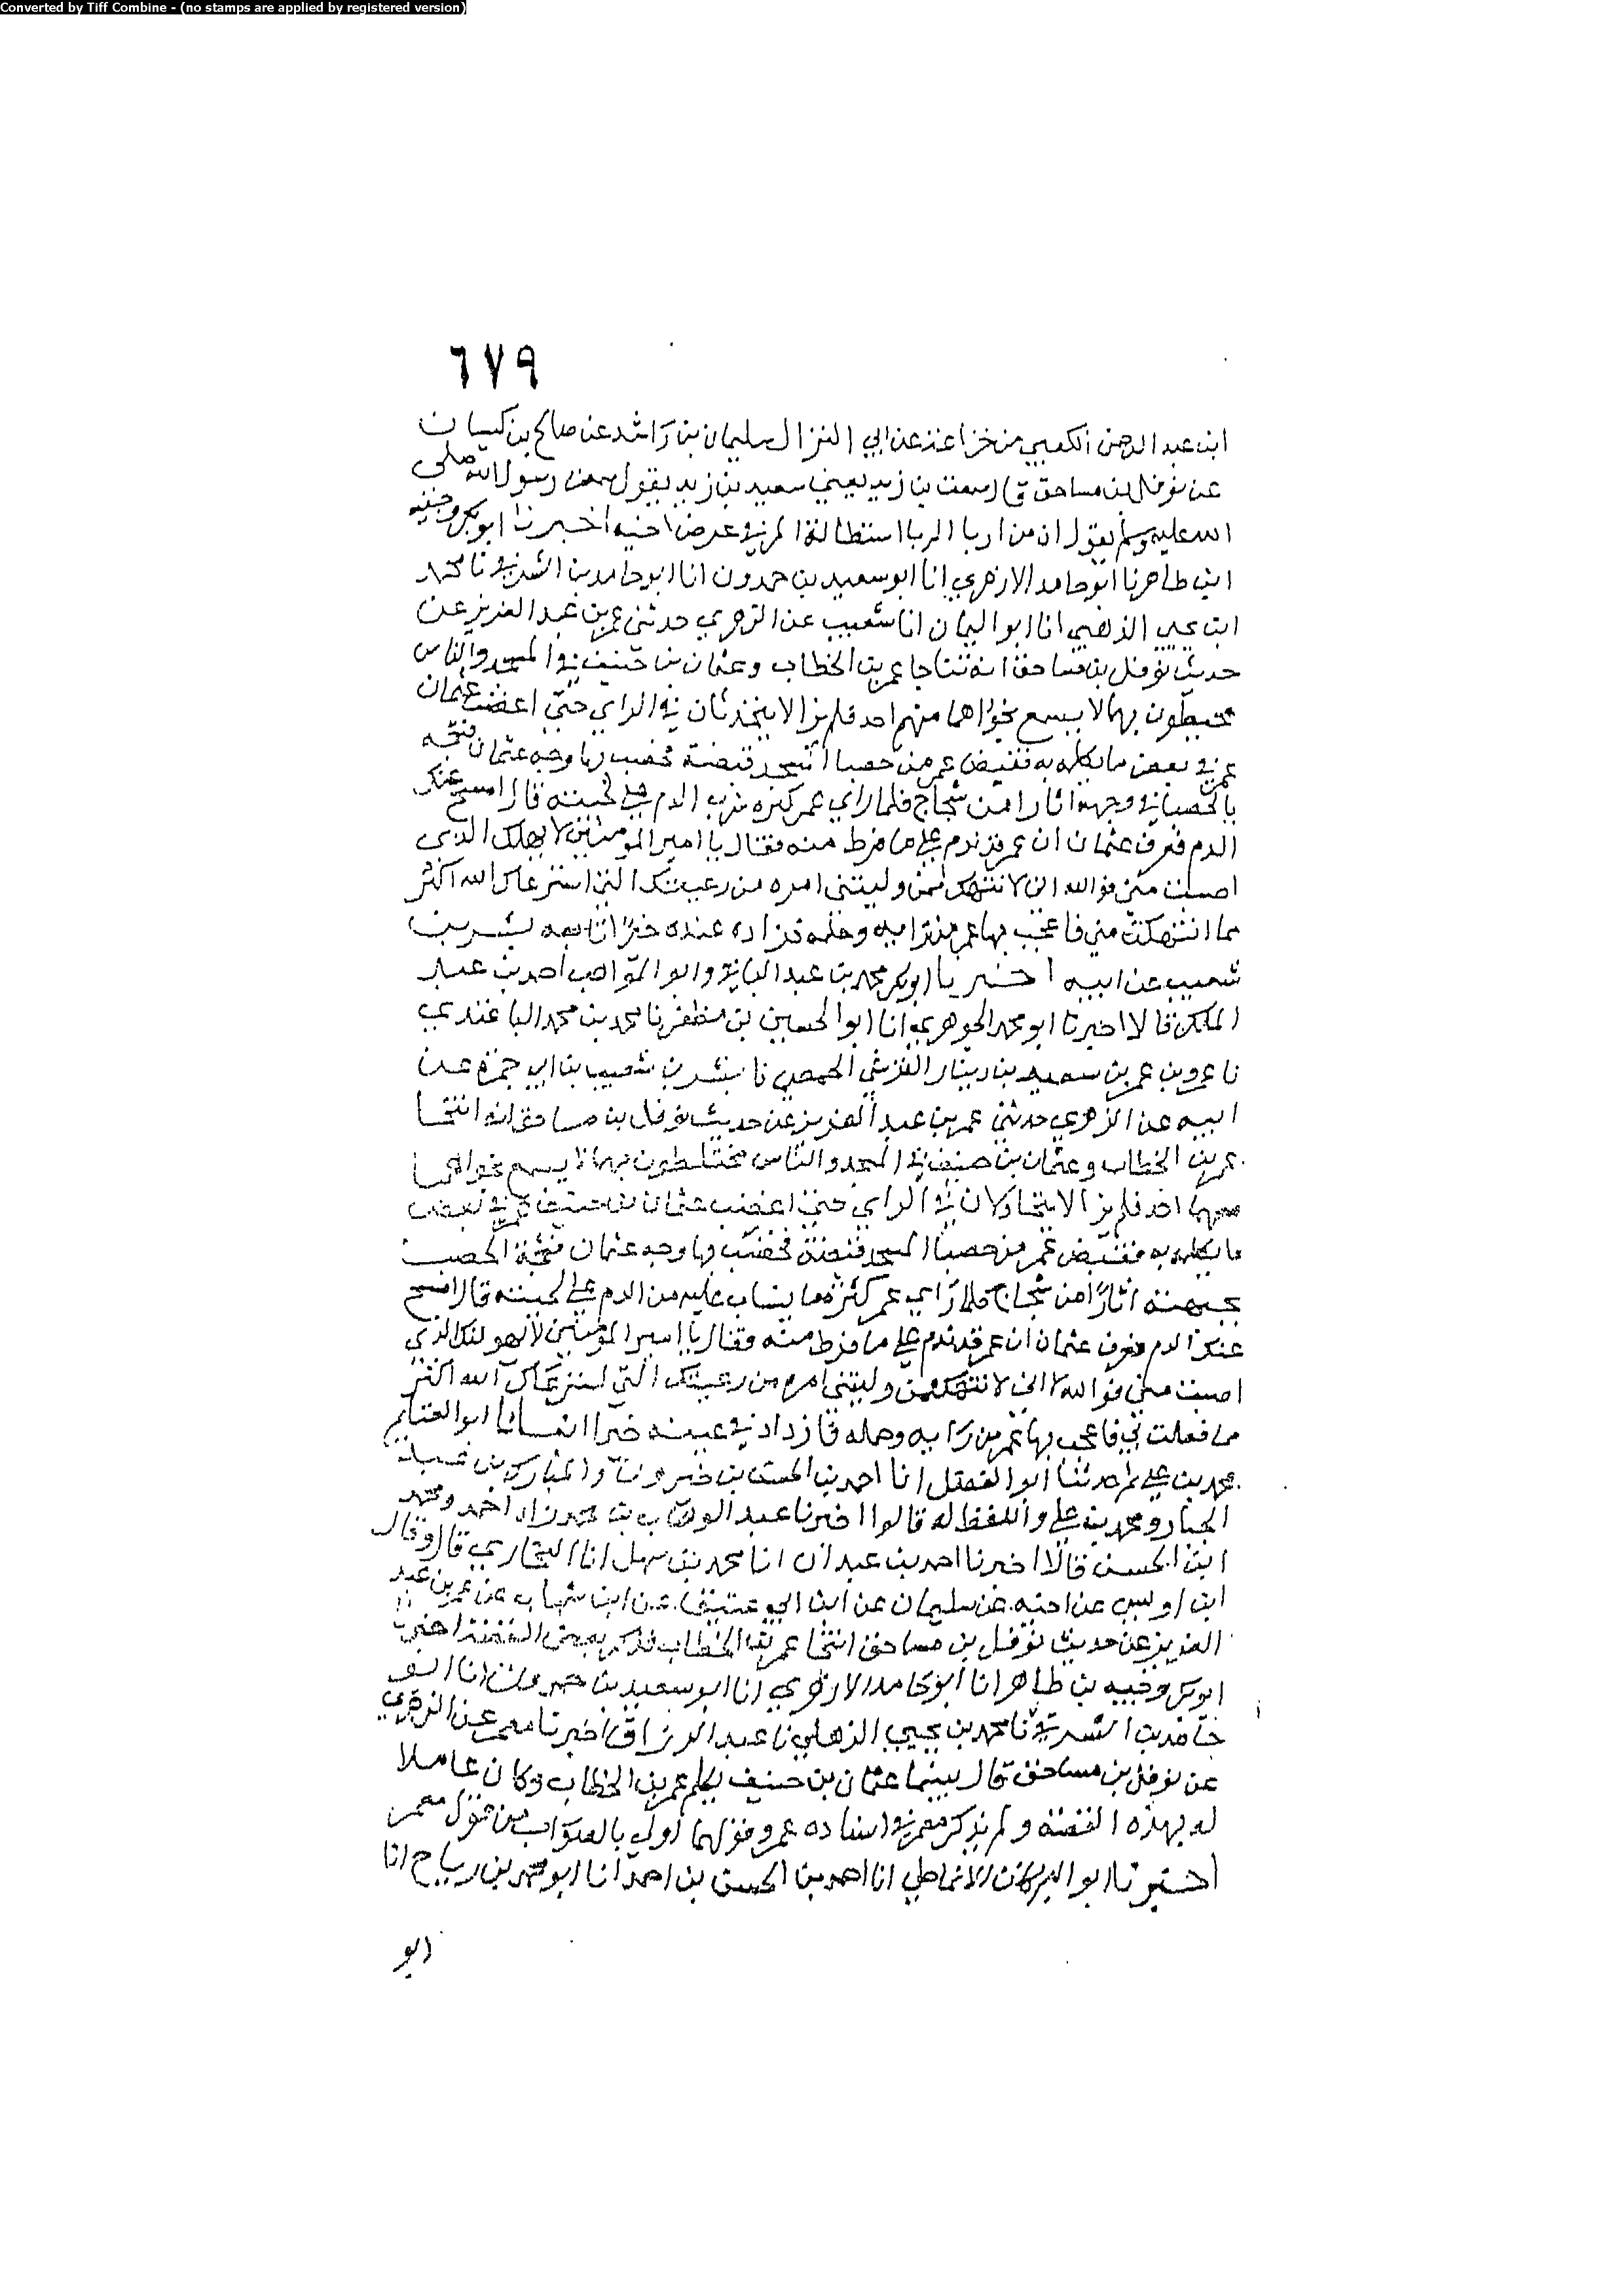 Converted by Tiff Combine - (no stamps are applied by registered version)
٦٧٩
ابن عبد الرحمن الكعبي من خزاعة عن ابي النزال سليمان بن راشد عن صالح بن كيسان
عن نوفل بن مساحق قال سمعت بن زيد يعني سعيد بن زيد يقول سمعت رسول الله صلى
الله عليه وسلم يقول ان من اربا الربا استطالة المر في عرض اخيه اخبرنا ابو بكر وجيه
ابن طاهر نا ابو حامد الازهري انا ابو سعيد بن حمدون انا ابو حامد بن الشرقي نا محمد
ابن يحيى الذهلي انا ابو اليمان انا شعيب عن الزهري حدثني عمر بن عبد العزيز عن
حديث نوفل بن مساحق انه تناجا عمر بن الخطاب وعثمان بن حنيف في المسجد والناس
محيطون بهما لا يسمع نجواهما منهم احد فلم يزالا يتحدثان في الراي حتى اعضب عثمان
عمر في بعض ما يكلمه به فقبض عمر من حصبا المسجد قبضة فحصب بها وجه عثمان فشجه
بالحصبا في وجهه اثارا من شجاج فلما راي عمر كثرة سرب الدم على لحيته قال امسح عنك
الدم فعرف عثمان ان عمر قد ندم على ما فرط منه فقال يا امير المومنين لا يهلك الذي
اصبت مني فوالله اني لانتهك ممن وليتني امره من رعيتك التي استرعاك الله اكثر
مما انتهكت مني فاعجب بها عمر من رايه وحلمه فزاده عنده خيرا تابعه بشر بن
شعيب عن ابيه اخبرنا ابو بكر محمد بن عبد الباقي وابو المواهب احمد بن عبد
الملك قالا اخبرنا ابو محمد الجوهري انا ابو الحسين بن مظفر نا محمد بن محمد الباغندي
نا عمرو بن عمر بن سعيد بن دينار القرشي الحمصي نا بشر بن شعيب بن ابي حمزة عن
ابيه عن الزهري حدثني عمر بن عبد العزيز عن حديث نوفل بن مساحق انه انتجا
عمر بن الخطاب وعثمان بن حنيف في المسجد والناس مختلطون بهما لا يسمع نجواهما
منهما احد فلم يزالا يتحاولان في الراي حتى اعضب عثمان بن حنيف عمر في بعض
ما يكلمه به فقبض عمر من حصبا المسجد قبضة فحصب بها وجه عثمان فشجه الحصب
بجبهته اثارا من شجاج فلما راي عمر كثرة ما ينساب عليه من الدم على لحيته قال امسح
عنك الدم فعرف عثمان ان عمر قد ندم على ما فرط منه فقال يا امير المومنين لا يهولنك الذي
اصبت مني فوالله اني لانتهك ممن وليتني امره من رعيتك التي استرعاك الله اكثر
مما فعلت بي فاعجب بها عمر من رايه وحلمه فازداد في عينه خيرا انبانا ابو الغنايم
محمد بن علي ثم حدثنا ابو الفضل انا احمد بن الحسن بن خيرون والمبارك بن عبد
الجبار ومحمد بن علي واللفظ له قالوا اخبرنا عبد الوهاب بن محمد زاد احمد ومحمد
ابن الحسن قالا اخبرنا احمد بن عبدان انا محمد بن سهل انا البخاري قال وقال
ابن اويس عن اخيه عن سليمان عن ابن ابي عتيق عن ابن شهاب عن عمر بن عبد
العزيز عن حديث نوفل بن مساحق انتجا عمر بن الخطاب فذكر بعض القصة اخبرنا
ابو بكر وجيه بن طاهر انا ابو حامد الازهري انا ابو سعيد بن حمدون انا ابو
حامد بن الشرقي نا محمد بن يحيى الذهلي نا عبد الرزاق اخبرنا معمر عن الزهري
عن نوفل بن مساحق قال بينما عثمان بن حنيف يكلم عمر بن الخطاب وكان عاملا
له بهذه القصة ولم يذكر معمر في اسناده عمر وقولهما اولى بالصواب من قول معمر
اخبرنا ابو البركات الانماطي انا احمد بن الحسن بن احمد انا ابو محمد بن رباح انا
ابو